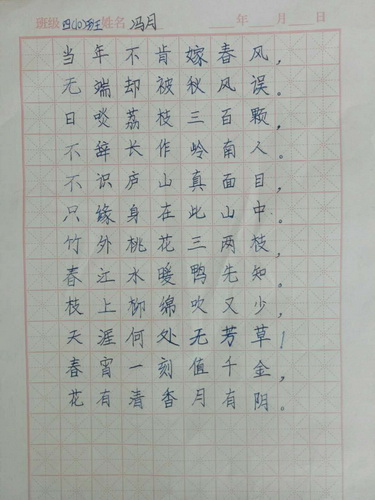 班级 四(10)班 姓名 冯月 年 月 日
当年不肯嫁春风,
无端却被秋风误。
日啖荔枝三百颗,
不辞长作岭南人。
不识庐山真面目,
只缘身在此山中。
竹外桃花三两枝,
春江水暖鸭先知。
枝上柳绵吹又少,
天涯何处无芳草!
春宵一刻值千金,
花有清香月有阴。